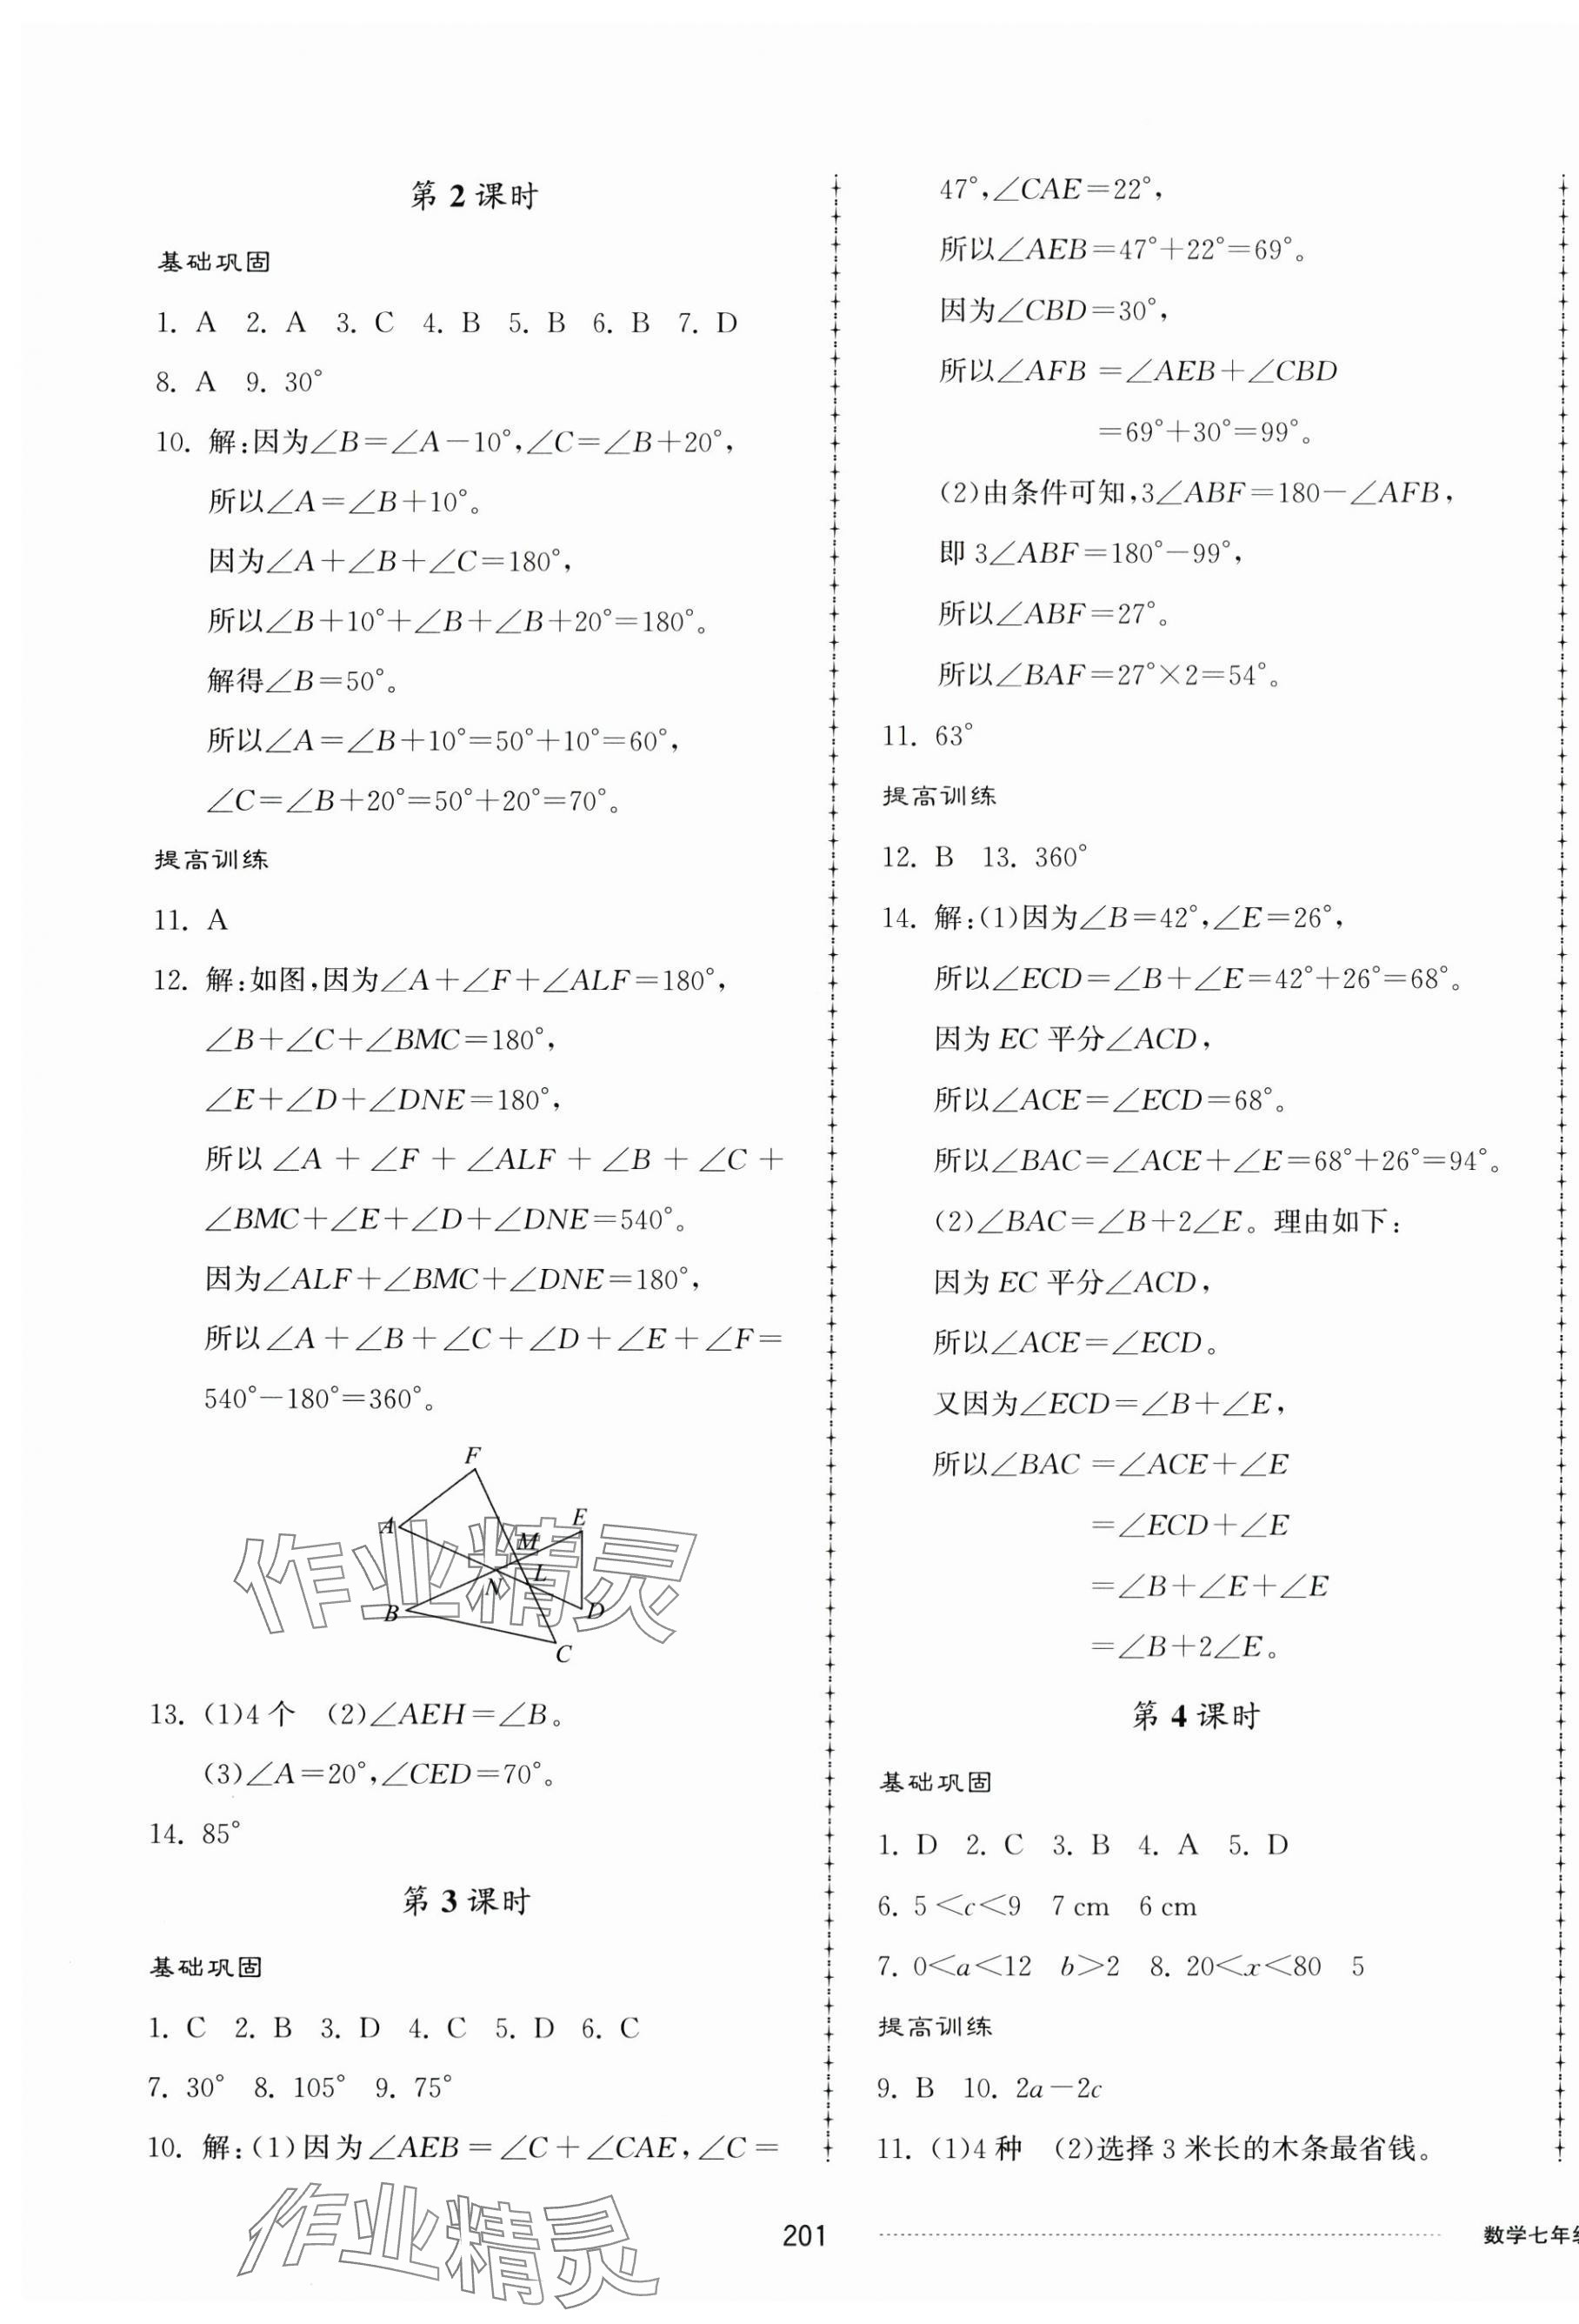 第 2 课时
基础巩固
1. A 2. A 3. C 4. B 5. B 6. B 7. D
8. A 9. 30°
10. 解:因为∠B=∠A-10°,∠C=∠B+20°,
所以∠A=∠B+10°。
因为∠A+∠B+∠C=180°,
所以∠B+10°+∠B+∠B+20°=180°。
解得∠B=50°。
所以∠A=∠B+10°=50°+10°=60°,
∠C=∠B+20°=50°+20°=70°。
提高训练
11. A
12. 解:如图,因为∠A+∠F+∠ALF=180°,
∠B+∠C+∠BMC=180°,
∠E+∠D+∠DNE=180°,
所以∠A+∠F+∠ALF+∠B+∠C+
∠BMC+∠E+∠D+∠DNE=540°。
因为∠ALF+∠BMC+∠DNE=180°,
所以∠A+∠B+∠C+∠D+∠E+∠F=
540°-180°=360°。
F
A
E
M
N
L
B
D
C
作业精灵
13. (1)4个 (2)∠AEH=∠B。
(3)∠A=20°,∠CED=70°。
14. 85°
第 3 课时
基础巩固
1. C 2. B 3. D 4. C 5. D 6. C
7. 30° 8. 105° 9. 75°
10. 解:(1)因为∠AEB=∠C+∠CAE,∠C=
47°,∠CAE=22°,
所以∠AEB=47°+22°=69°。
因为∠CBD=30°,
所以∠AFB=∠AEB+∠CBD
=69°+30°=99°。
(2)由条件可知,3∠ABF=180-∠AFB,
即3∠ABF=180°-99°,
所以∠ABF=27°。
所以∠BAF=27°×2=54°。
11. 63°
提高训练
12. B 13. 360°
14. 解:(1)因为∠B=42°,∠E=26°,
所以∠ECD=∠B+∠E=42°+26°=68°。
因为EC平分∠ACD,
所以∠ACE=∠ECD=68°。
所以∠BAC=∠ACE+∠E=68°+26°=94°。
(2)∠BAC=∠B+2∠E。理由如下:
因为EC平分∠ACD,
所以∠ACE=∠ECD。
又因为∠ECD=∠B+∠E,
所以∠BAC=∠ACE+∠E
=∠ECD+∠E
=∠B+∠E+∠E
=∠B+2∠E。
第 4 课时
基础巩固
1. D 2. C 3. B 4. A 5. D
6. 5<c<9 7 cm 6 cm
7. 0<a<12 b>2 8. 20<x<80 5
提高训练
9. B 10. 2a-2c
11. (1)4种 (2)选择3米长的木条最省钱。
作业精灵
201
数学七年